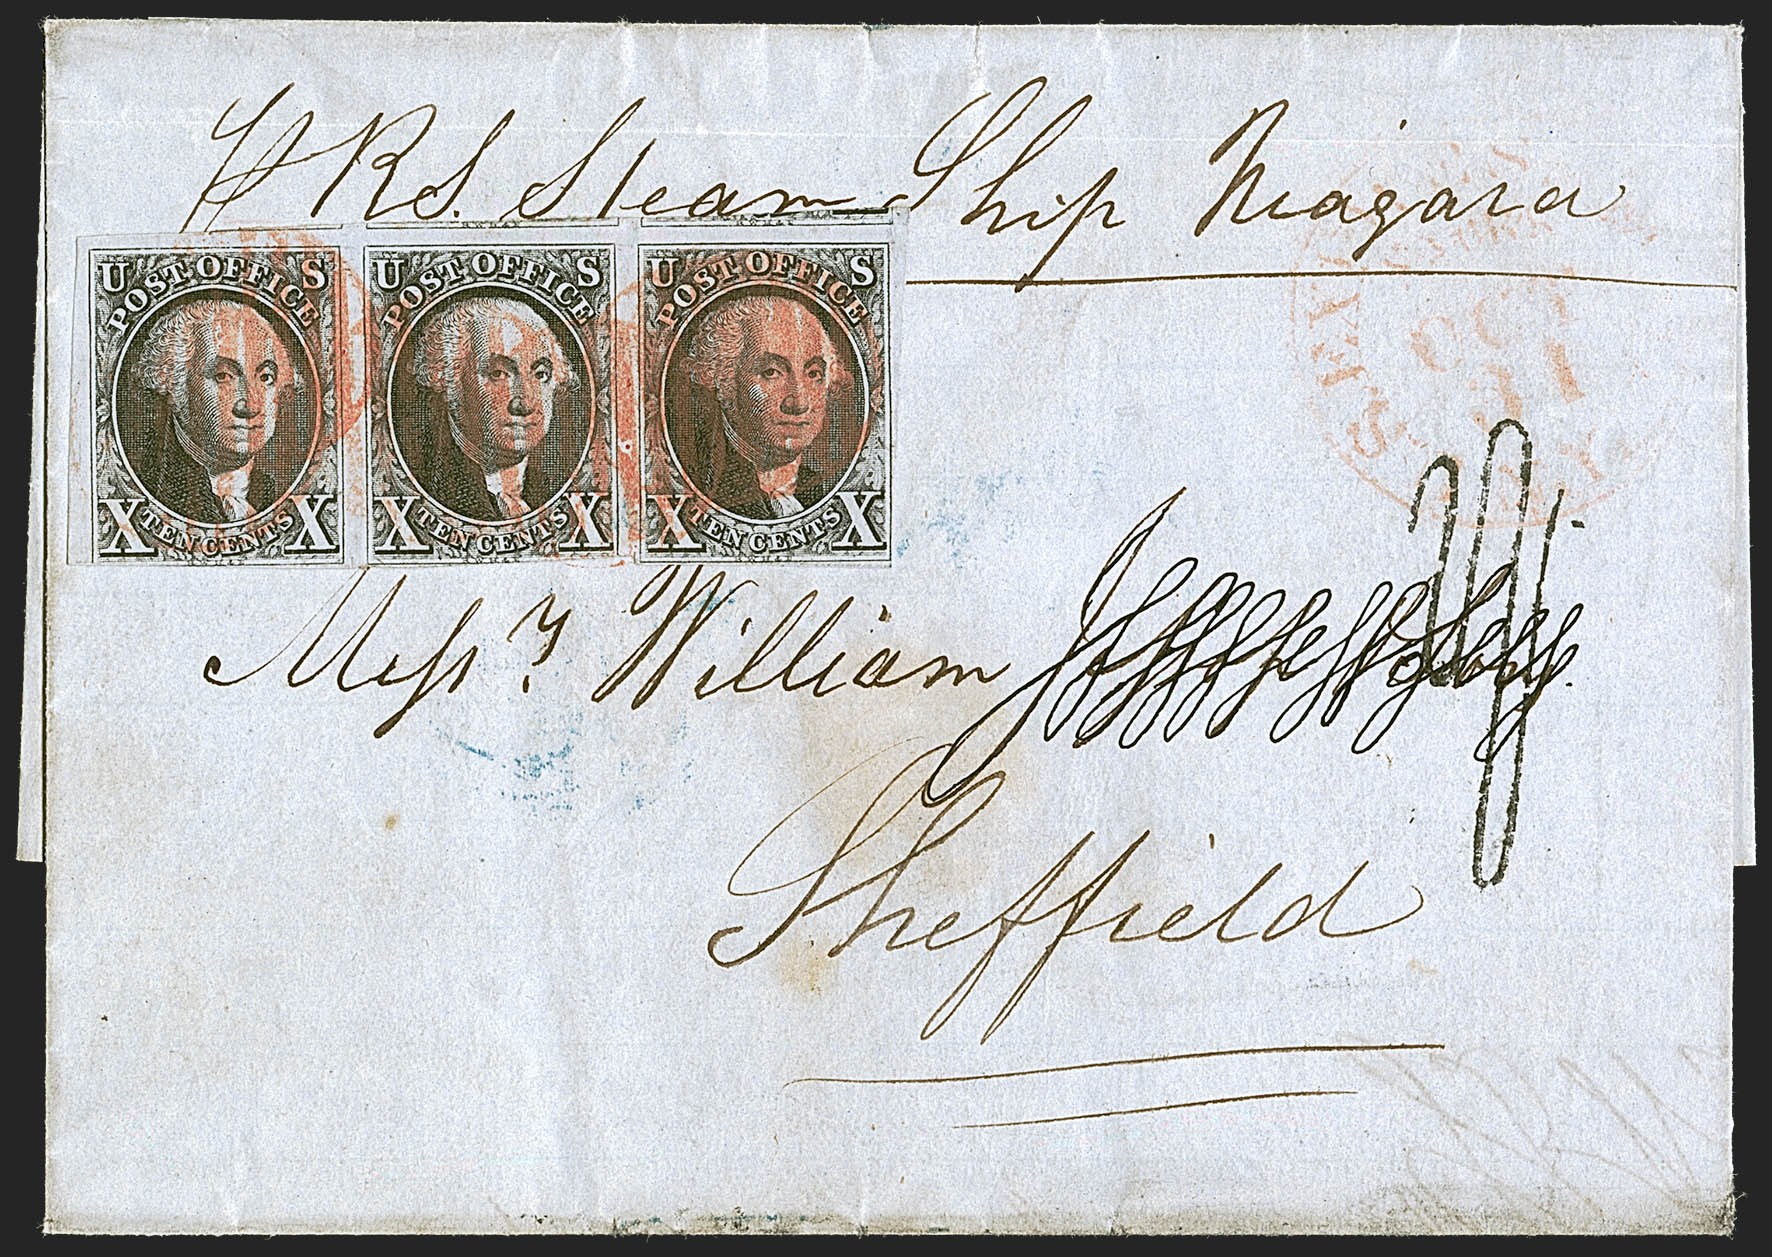 P RS. Steam Ship Niagara
U S
POST OFFICE
X TEN CENTS X
U S
POST OFFICE
X TEN CENTS X
U S
POST OFFICE
X TEN CENTS X
Messrs William
Sheffield